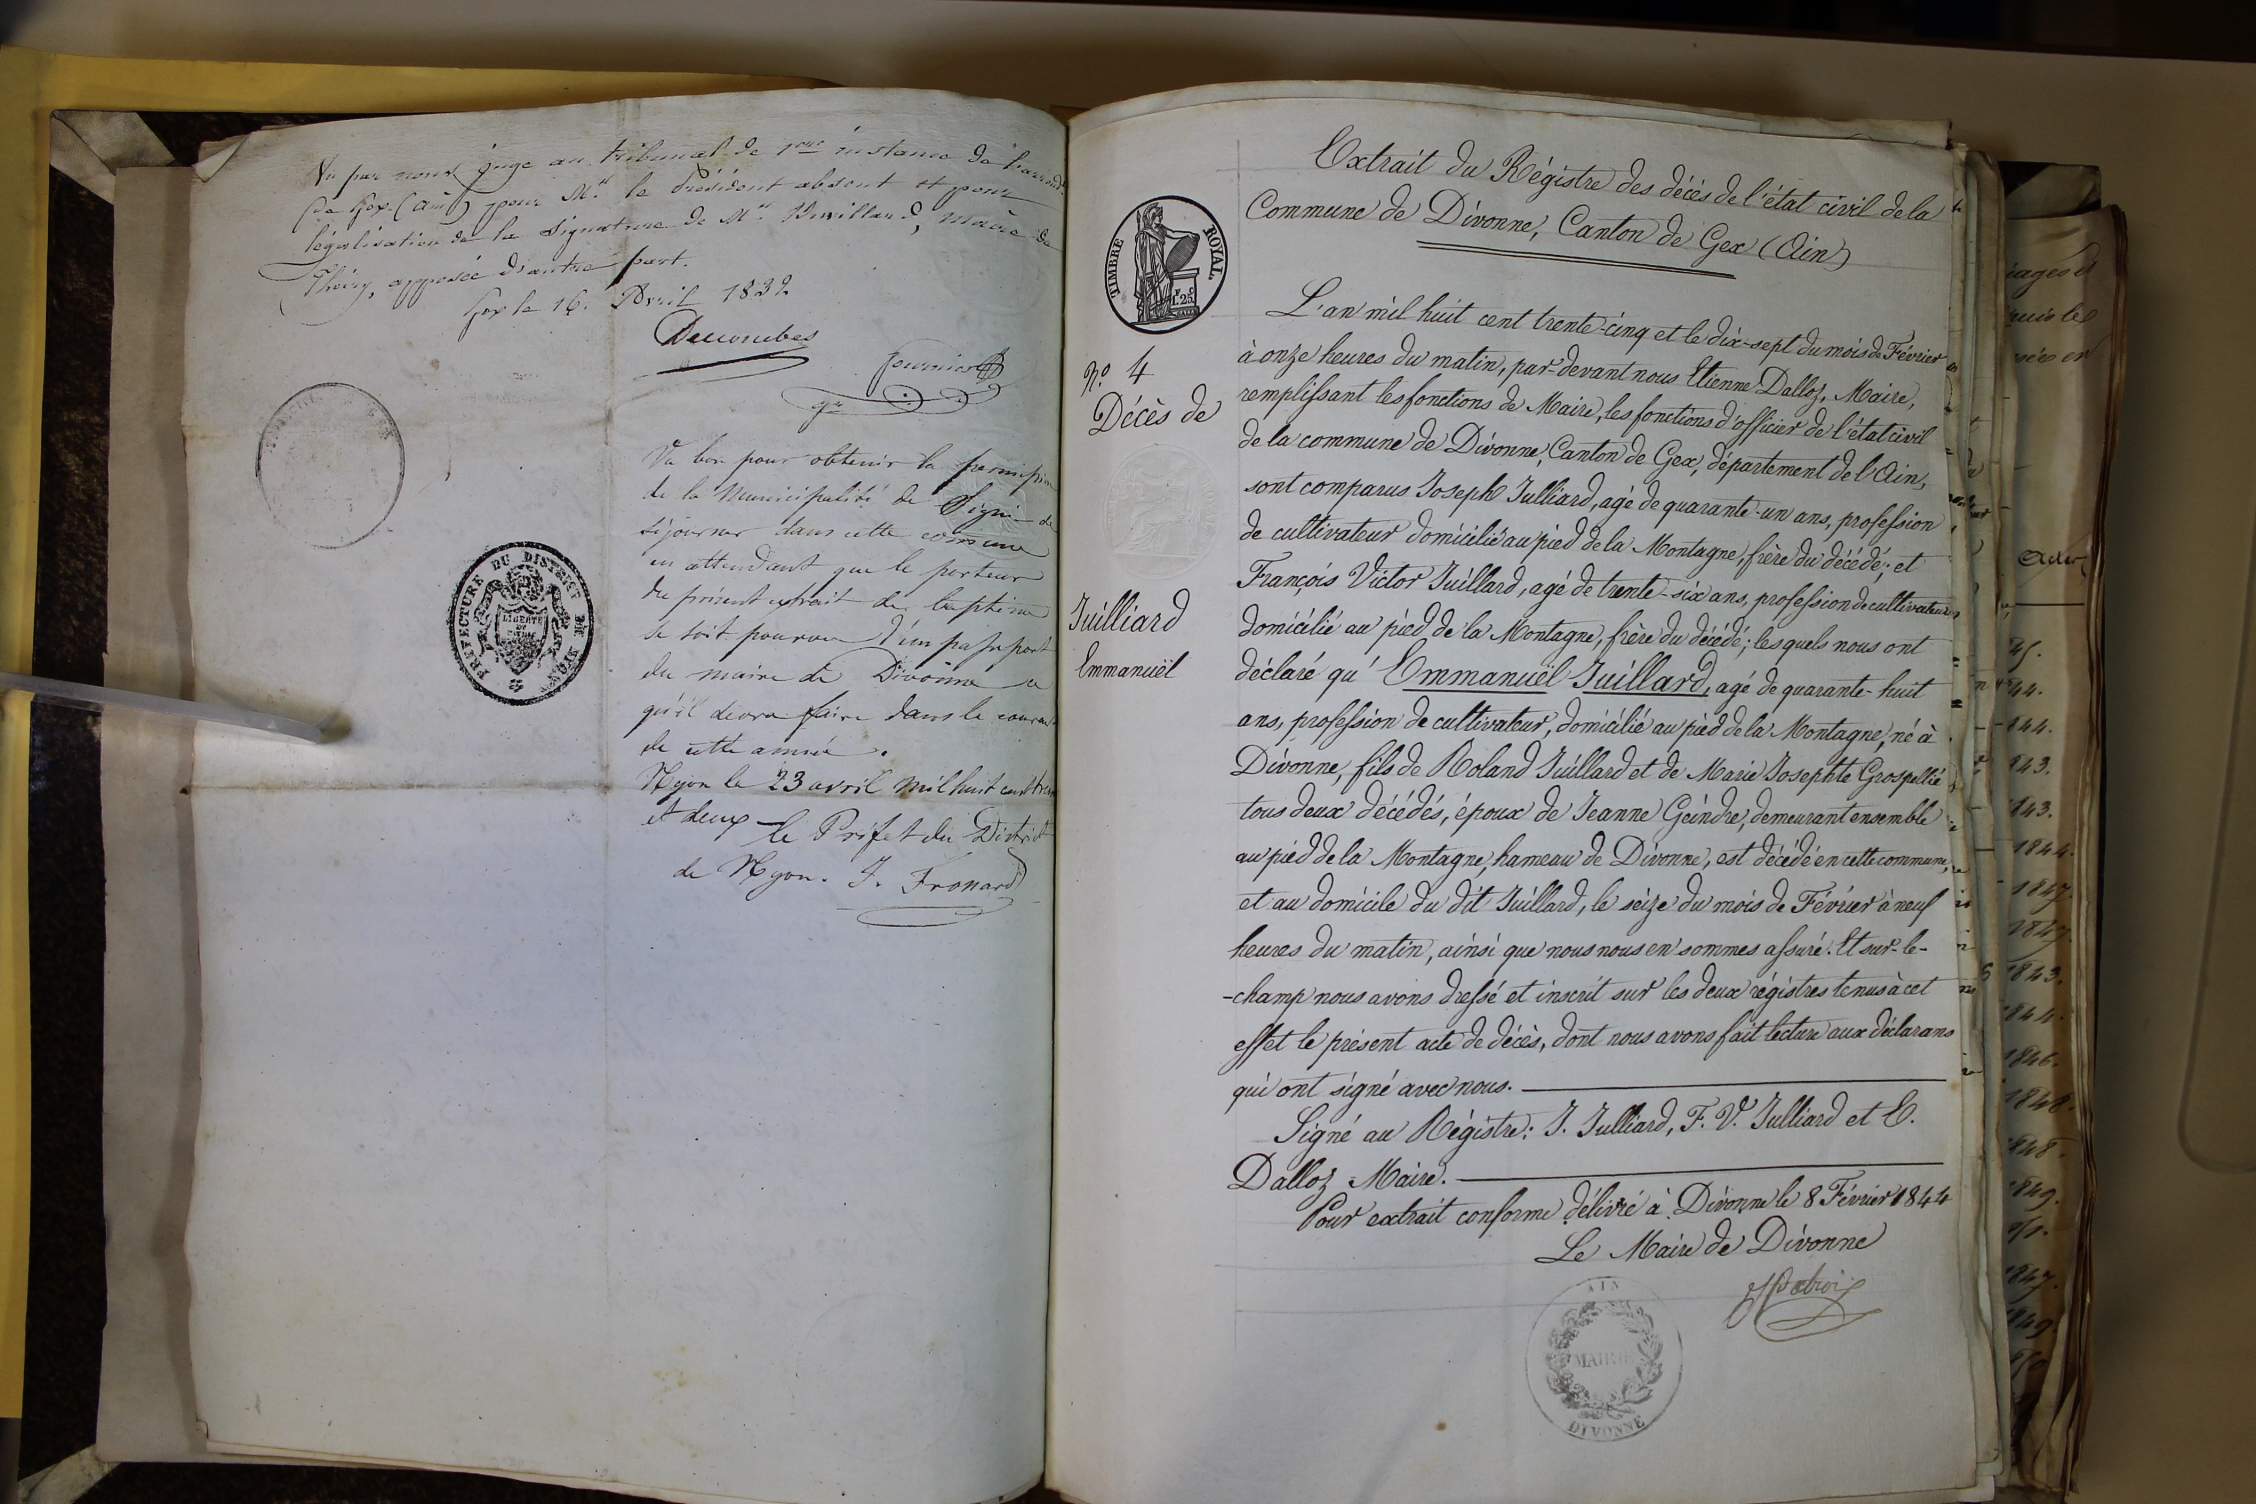 Vu par nous juge au tribunal de 1ère instance de
de Gex (ain) pour Mr. le Président absent et pour
légalisation de la signature de Mr. maire de
Thoiry, apposée d'autre part.
Gex le 16. Avril 1832
Descombes
fournier
gr
PRÉFECTURE DU DISTRICT DE NYON
LIBERTÉ
ET
PATRIE
Vu bon pour obtenir la permission
de la Municipalité de Signi de
séjourner dans cette commune
en attendant que le porteur
du présent extrait de baptême
se soit pourvu d'un passeport
du maire de Divonne
qu'il devra faire dans le courant
de cette année.
Nyon le 23 avril mil huit cent
et deux le Préfet du District
de Nyon. J. Fronard
Extrait du Régistre des décès de l'état civil de la
Commune de Divonne, Canton de Gex (Ain)
TIMBRE ROYAL
1.25
No. 4
Décès de
Juilliard
Emmanuël
L'an mil huit cent trente-cinq et le dix-sept du mois de Février
à onze heures du matin, par-devant nous Etienne Dalloz, Maire,
remplissant les fonctions de Maire, les fonctions d'officier de l'état civil
de la commune de Divonne, Canton de Gex, département de l'Ain,
sont comparus Joseph Julliard, agé de quarante-un ans, profession
de cultivateur domicilié au pied de la Montagne, frère du décédé; et
François Victor Juillard, agé de trente-six ans, profession de cultivateur
domicilié au pied de la Montagne, frère du décédé; les quels nous ont
déclaré qu' Emmanuël Juillard, agé de quarante-huit
ans, profession de cultivateur, domicilié au pied de la Montagne, né à
Divonne, fils de Roland Juillard et de Marie Josephte Grospellié
tous deux décédés, époux de Jeanne Geindre, demeurant ensemble
au pied de la Montagne, hameau de Divonne, est décédé en cette commune,
et au domicile du dit Juillard, le seize du mois de Février à neuf
heures du matin, ainsi que nous nous en sommes assuré. Et sur-le-
-champ nous avons dressé et inscrit sur les deux régistres tenus à cet
effet le présent acte de décès, dont nous avons fait lecture aux déclarans
qui ont signé avec nous.
Signé au Régistre: J. Julliard, F. V. Julliard et E.
Dalloz Maire.
Pour extrait conforme délivré à Divonne le 8 Février 1844
Le Maire de Divonne
AIN
MAIRIE
DIVONNE
44.
144.
143.
143.
1844.
1847.
1847.
1843.
1844.
1846.
1848.
1848.
1849.
1847.
1849.